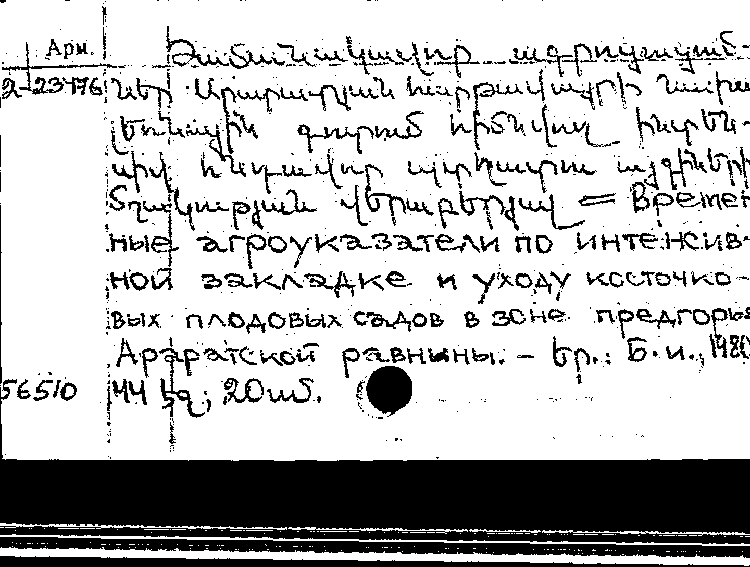 Арм. Ժամանակավոր ագրոցուցում-
2-23476 ներ Արարատյան հարթավայրի նախա
լեռնային գոտում հիմնվող ինտեն-
սիվ կորիզավոր պտղատու այգիների
մշակության վերաբերյալ = Времен
ные агроуказатели по интенсив-
ной закладке и уходу косточко-
вых плодовых садов в зоне предгорья
Араратской равнины. – Եր.: Б. и., 1980
56510 44 էջ; 20սմ.